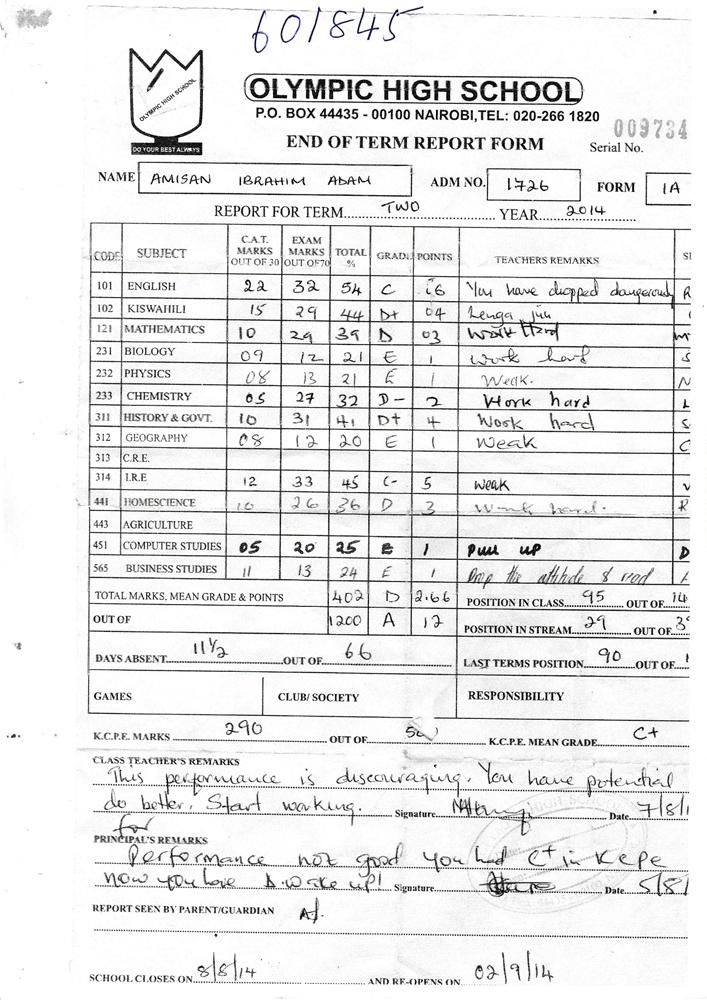 601845
OLYMPIC HIGH SCHOOL
DO YOUR BEST ALWAYS
OLYMPIC HIGH SCHOOL
P.O. BOX 44435 - 00100 NAIROBI,TEL: 020-266 1820
009734
END OF TERM REPORT FORM Serial No.
NAME AMISAN IBRAHIM ADAM ADM NO. 1726 FORM 1A
REPORT FOR TERM TWO YEAR 2014
CODE SUBJECT C.A.T. MARKS OUT OF 30 EXAM MARKS OUT OF70 TOTAL % GRADE POINTS TEACHERS REMARKS
101 ENGLISH 22 32 54 C 6 You have dropped dangerously R
102 KISWAHILI 15 29 44 D+ 04 Lenga juu
121 MATHEMATICS 10 29 39 D 03 Work Hard
231 BIOLOGY 09 12 21 E 1 work hard S
232 PHYSICS 08 13 21 E 1 Weak. N
233 CHEMISTRY 05 27 32 D- 2 Work hard L
311 HISTORY & GOVT. 10 31 41 D+ 4 Work hard S
312 GEOGRAPHY 08 12 20 E 1 Weak C
313 C.R.E.
314 I.R.E 12 33 45 C- 5 weak
441 HOMESCIENCE 10 26 36 D 3 Work hard. R
443 AGRICULTURE
451 COMPUTER STUDIES 05 20 25 E 1 Pull up D
565 BUSINESS STUDIES 11 13 24 E 1 Drop the attitude & read
TOTAL MARKS, MEAN GRADE & POINTS 402 D 2.66 POSITION IN CLASS 95 OUT OF 14
OUT OF 1200 A 12 POSITION IN STREAM 29 OUT OF 3
DAYS ABSENT 11½ OUT OF 66 LAST TERMS POSITION 90 OUT OF 1
GAMES CLUB/ SOCIETY RESPONSIBILITY
K.C.P.E. MARKS 290 OUT OF K.C.P.E. MEAN GRADE C+
CLASS TEACHER'S REMARKS
This performance is discouraging. You have potential
do better. Start working. Signature Date 7/8/1
for
PRINCIPAL'S REMARKS
Performance not good you had C+ in Kcpe
now you have D. wake up! Signature Date 5/8/
REPORT SEEN BY PARENT/GUARDIAN
SCHOOL CLOSES ON 8/8/14 AND RE-OPENS ON 02/9/14